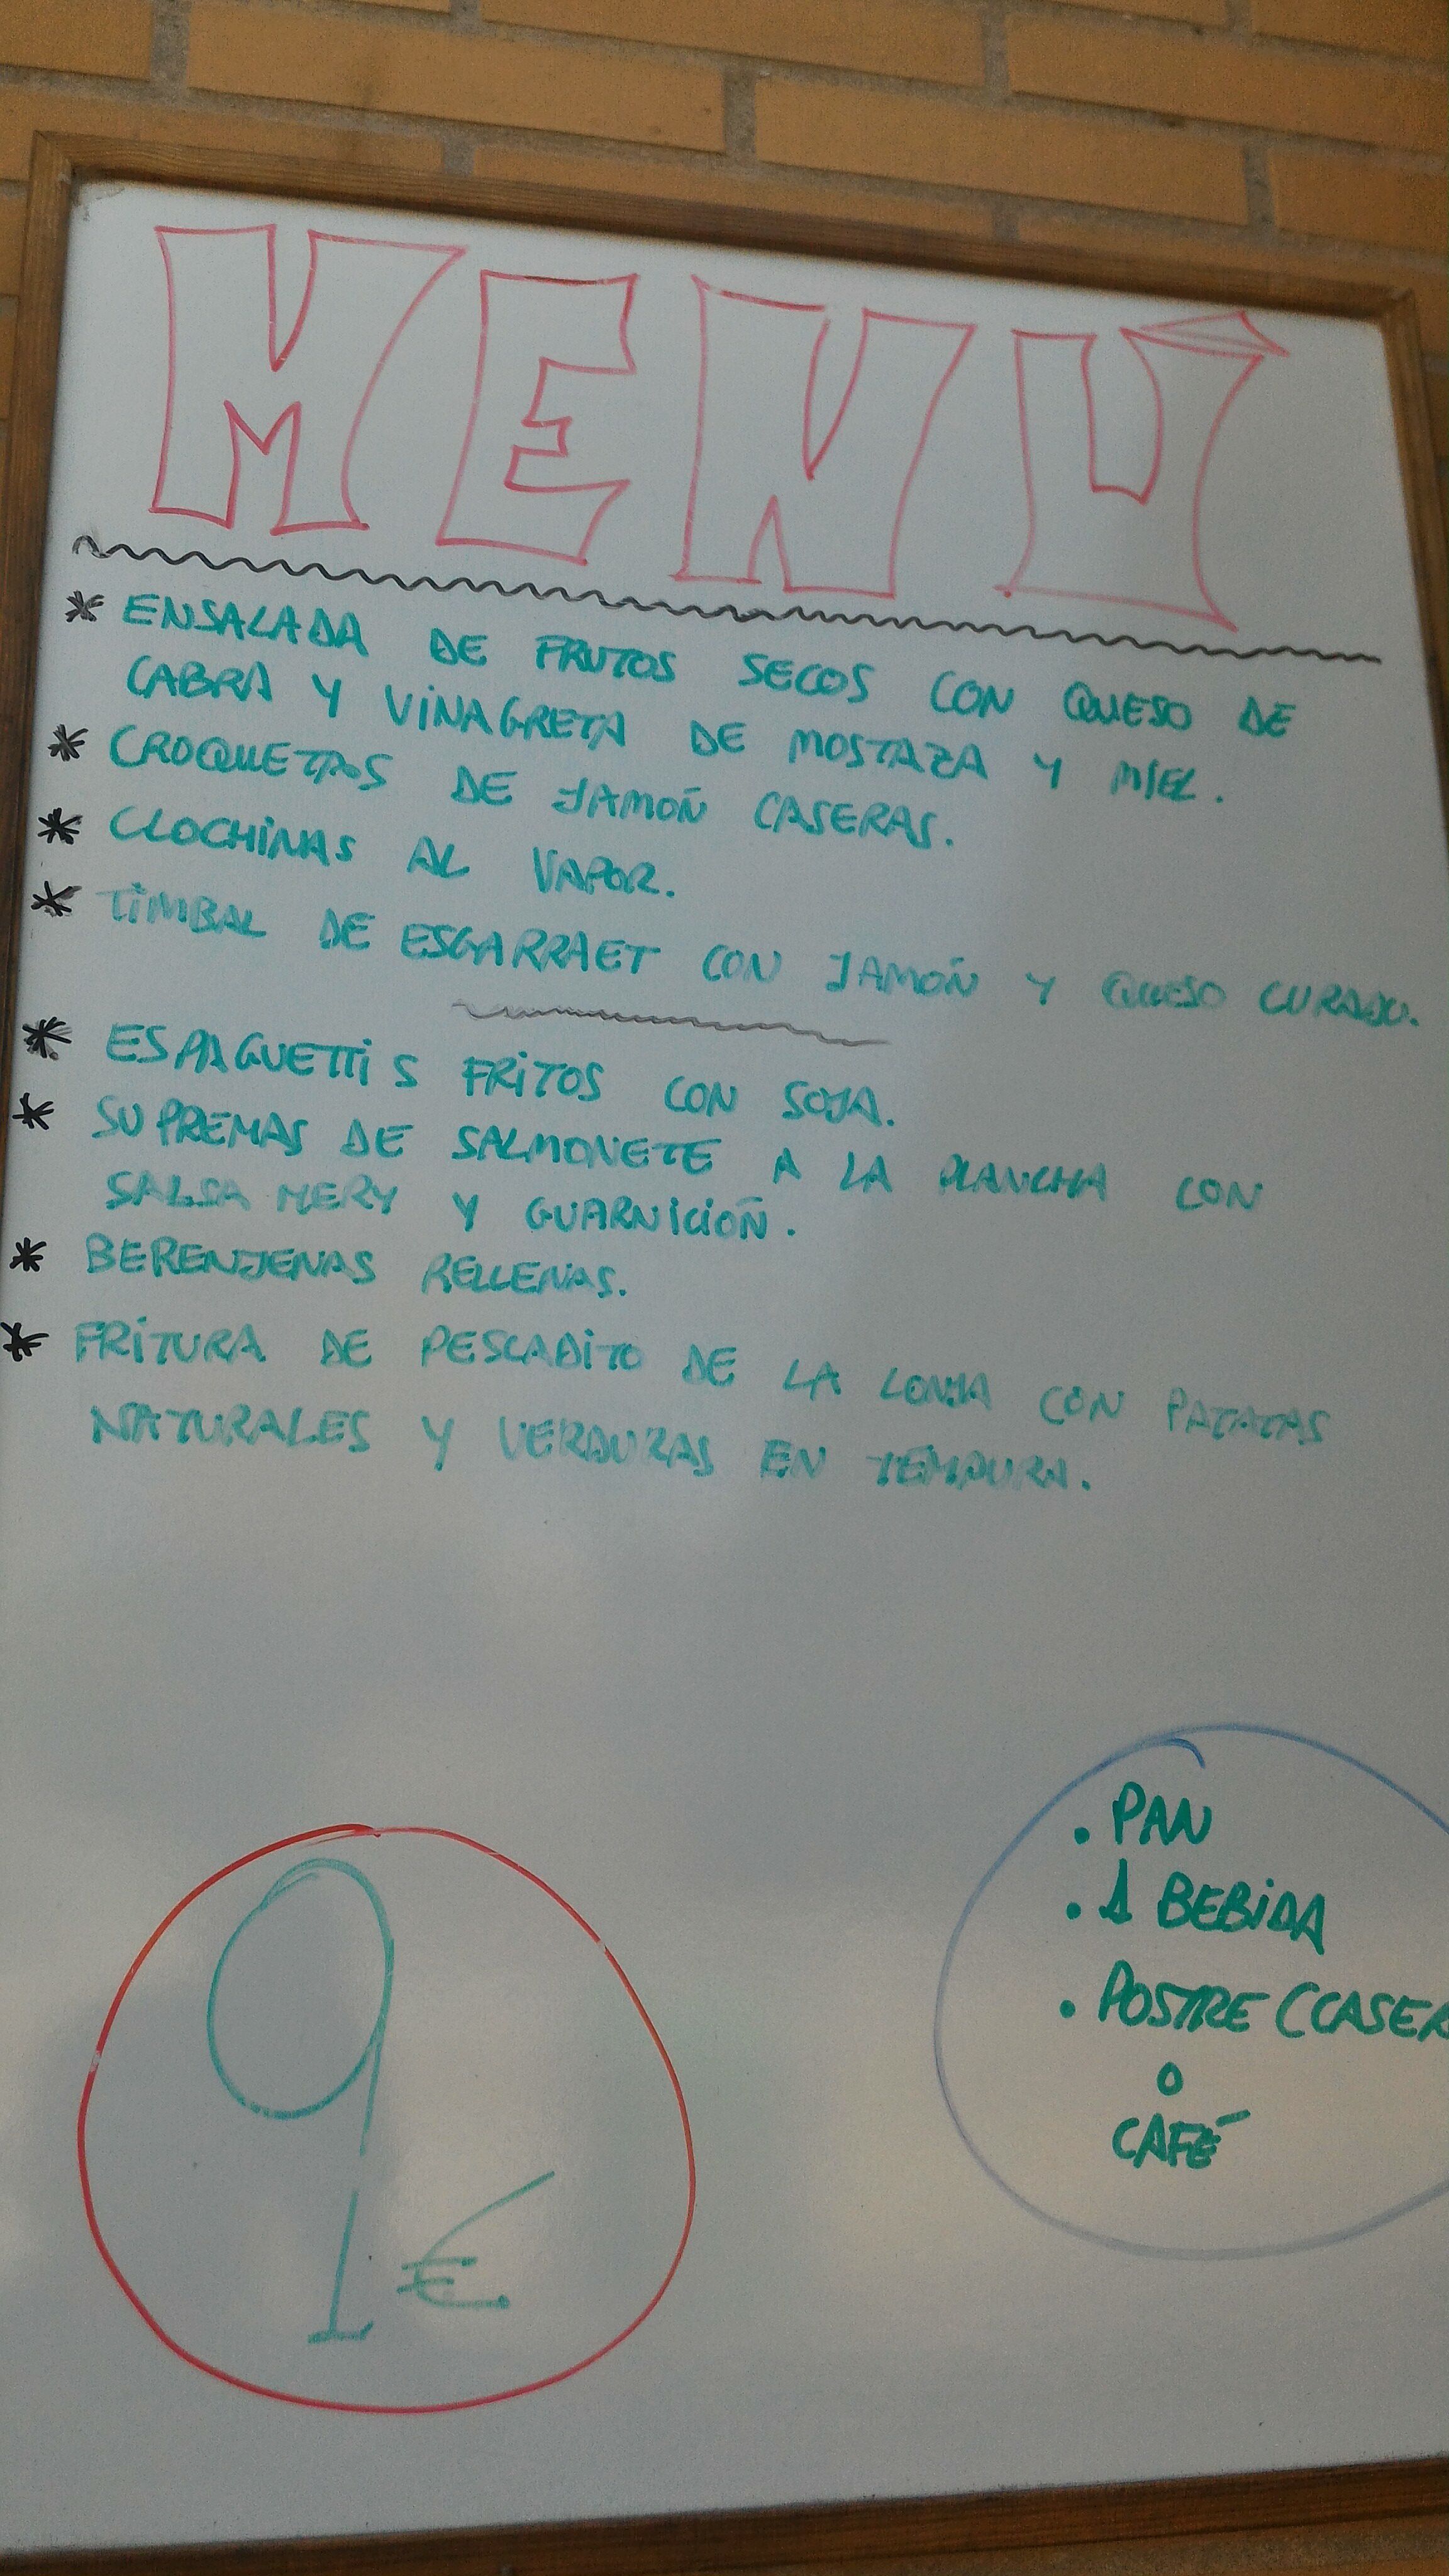 MENÚ
* ENSALADA DE FRUTOS SECOS CON QUESO DE
CABRA Y VINAGRETA DE MOSTAZA Y MIEL.
* CROQUETAS DE JAMOÑ CASERAS.
* CLOCHINAS AL VAPOR.
* TIMBAL DE ESGARRAET CON JAMOÑ Y QUESO CURADO.
* ESPAGUETTIS FRITOS CON SOJA.
* SUPREMAS DE SALMONETE A LA PLANCHA CON
SALSA MERY Y GUARNICIOÑ.
* BERENJENAS RELLENAS.
* FRITURA DE PESCADITO DE LA LONJA CON PATATAS
NATURALES Y VERDURAS EN TEMPURA.
. PAN
. 1 BEBIDA
. POSTRE (CASER
O
CAFÉ
9 €.